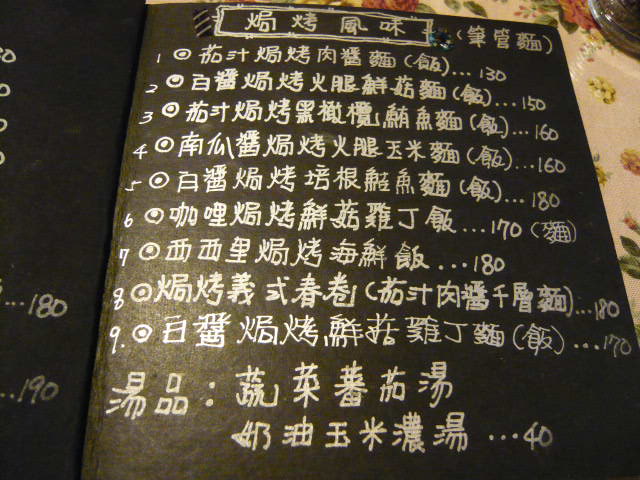 焗烤風味 (筆管麵)
1 ⊙茄汁焗烤肉醬麵(飯)...130
2 ⊙白醬焗烤火腿鮮菇麵(飯)...150
3 ⊙茄汁焗烤黑橄欖鮪魚麵(飯)...160
4 ⊙南瓜醬焗烤火腿玉米麵(飯)...160
5 ⊙白醬焗烤培根鮭魚麵(飯)...180
6 ⊙咖哩焗烤鮮菇雞丁飯...170(麵)
7 ⊙西西里焗烤海鮮飯...180
8 ⊙焗烤義式春卷(茄汁肉醬千層麵)...180
9. ⊙白醬焗烤鮮菇雞丁麵(飯)...170
湯品:蔬菜蕃茄湯
奶油玉米濃湯...40
...180
...190